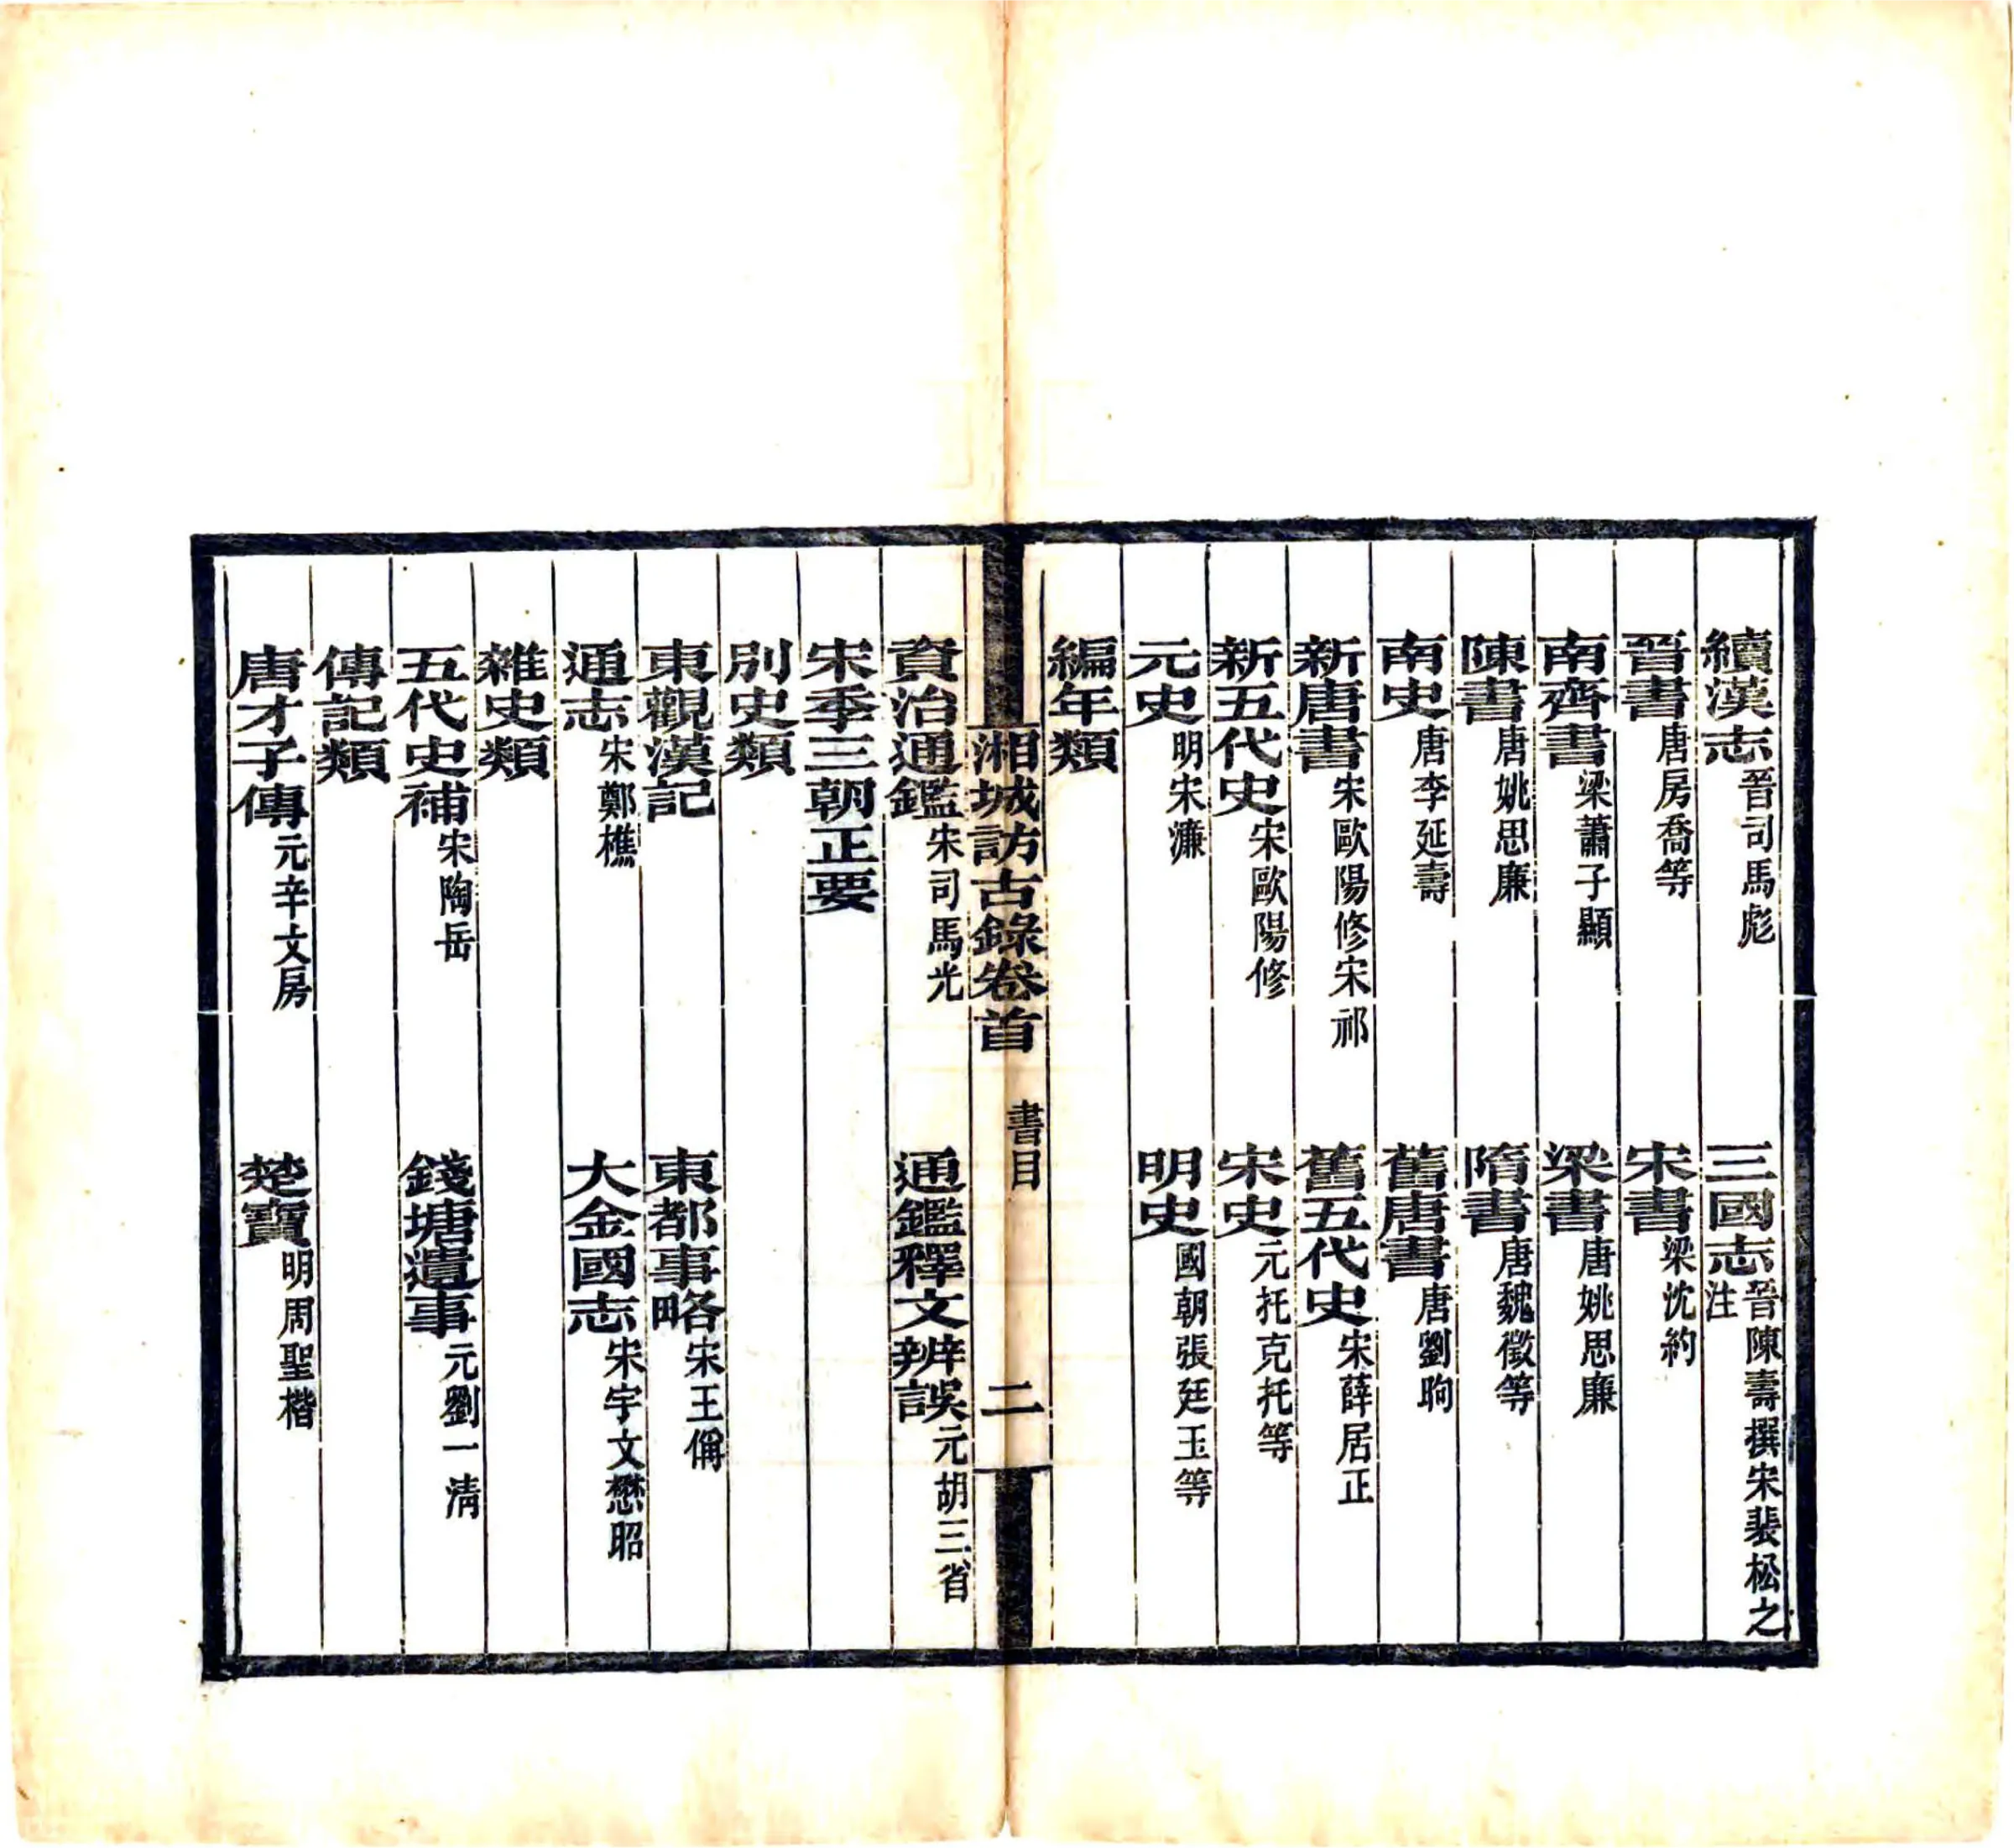 續漢志晉司馬彪 三國志晉陳壽撰宋裴松之注
晉書唐房喬等 宋書梁沈約
南齊書梁蕭子顯 梁書唐姚思廉
陳書唐姚思廉 隋書唐魏徵等
南史唐李延壽 舊唐書唐劉昫
新唐書宋歐陽修宋祁 舊五代史宋薛居正
新五代史宋歐陽修 宋史元托克托等
元史明宋濂 明史國朝張廷玉等
編年類
湘城訪古錄卷首 書目 二
資治通鑑宋司馬光 通鑑釋文辨誤元胡三省
宋季三朝正要
別史類
東觀漢記 東都事略宋王偁
通志宋鄭樵 大金國志宋宇文懋昭
雜史類
五代史補宋陶岳 錢塘遺事元劉一清
傳記類
唐才子傳元辛文房 楚寶明周聖楷